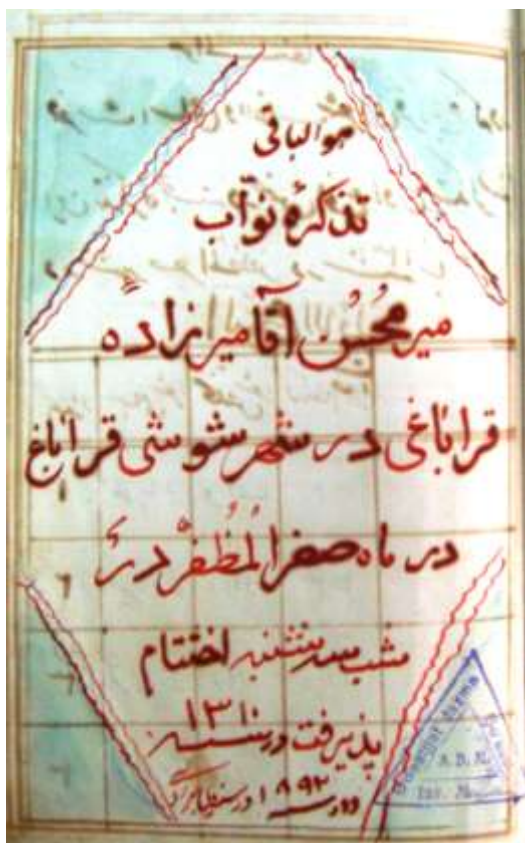 هوالباقی
تذکرهٔ نوّاب
میر محسن آقا میر زاده
قراباغی در شهر شوشی قراباغ
در ماه صفر المُظفّر در
شب سه شنبه اختتام
پذیرفت در سنه ۱۳۱۰
و در سنه ۱۸۹۲
A.D.N.